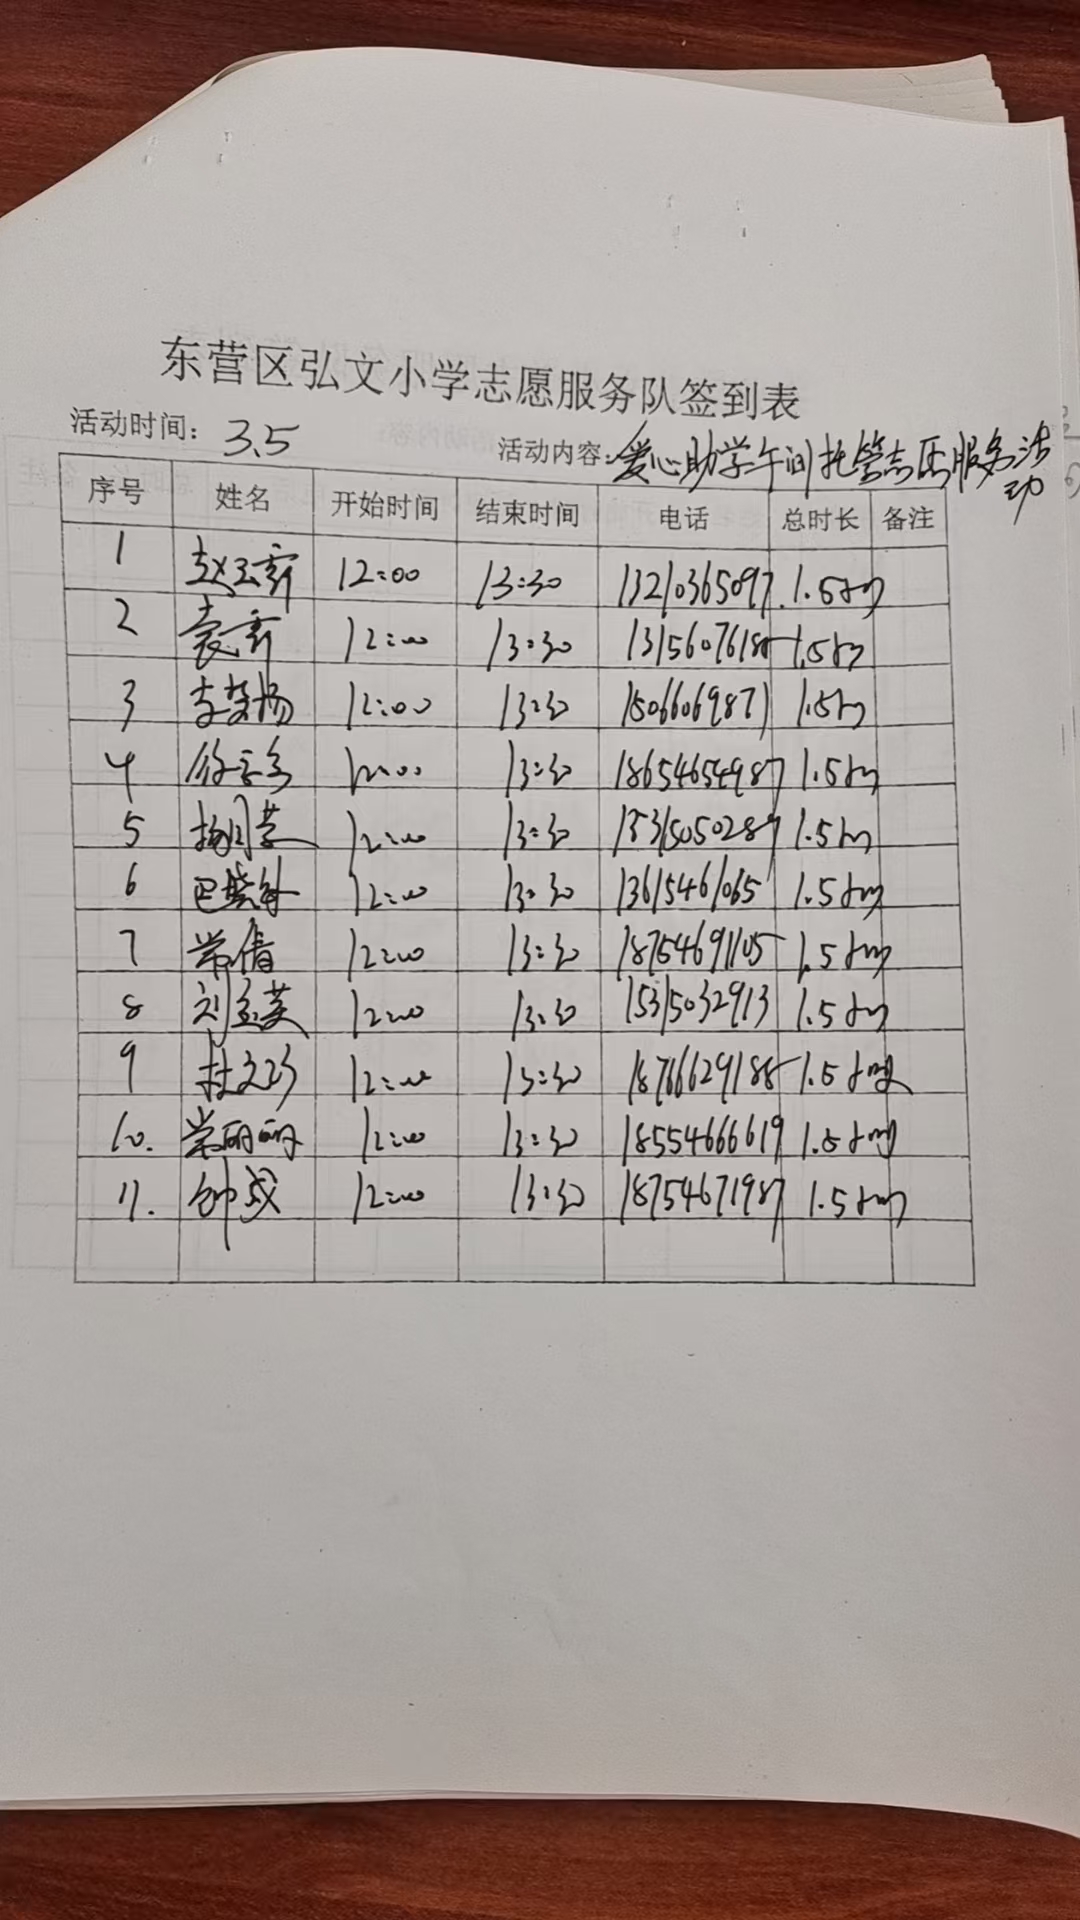 东营区弘文小学志愿服务队签到表
活动时间: 3.5
活动内容: 爱心助学午间托管志愿服务活动
序号 姓名 开始时间 结束时间 电话 总时长 备注
1 12:00 13:30 13210365097 1.5
2 12:00 13:30 1.5
3 12:00 13:30 15066069871 1.5
4 12:00 13:30 18654654987 1.5
5 12:00 13:30 1.5
6 12:00 13:30 13615461065 1.5
7 常倩 12:00 13:30 18754691105 1.5
8 刘玉英 12:00 13:30 15315032913 1.5
9 12:00 13:30 18766629188 1.5
10. 常丽丽 12:00 13:30 18554666619 1.5
11. 12:00 13:30 18754671987 1.5